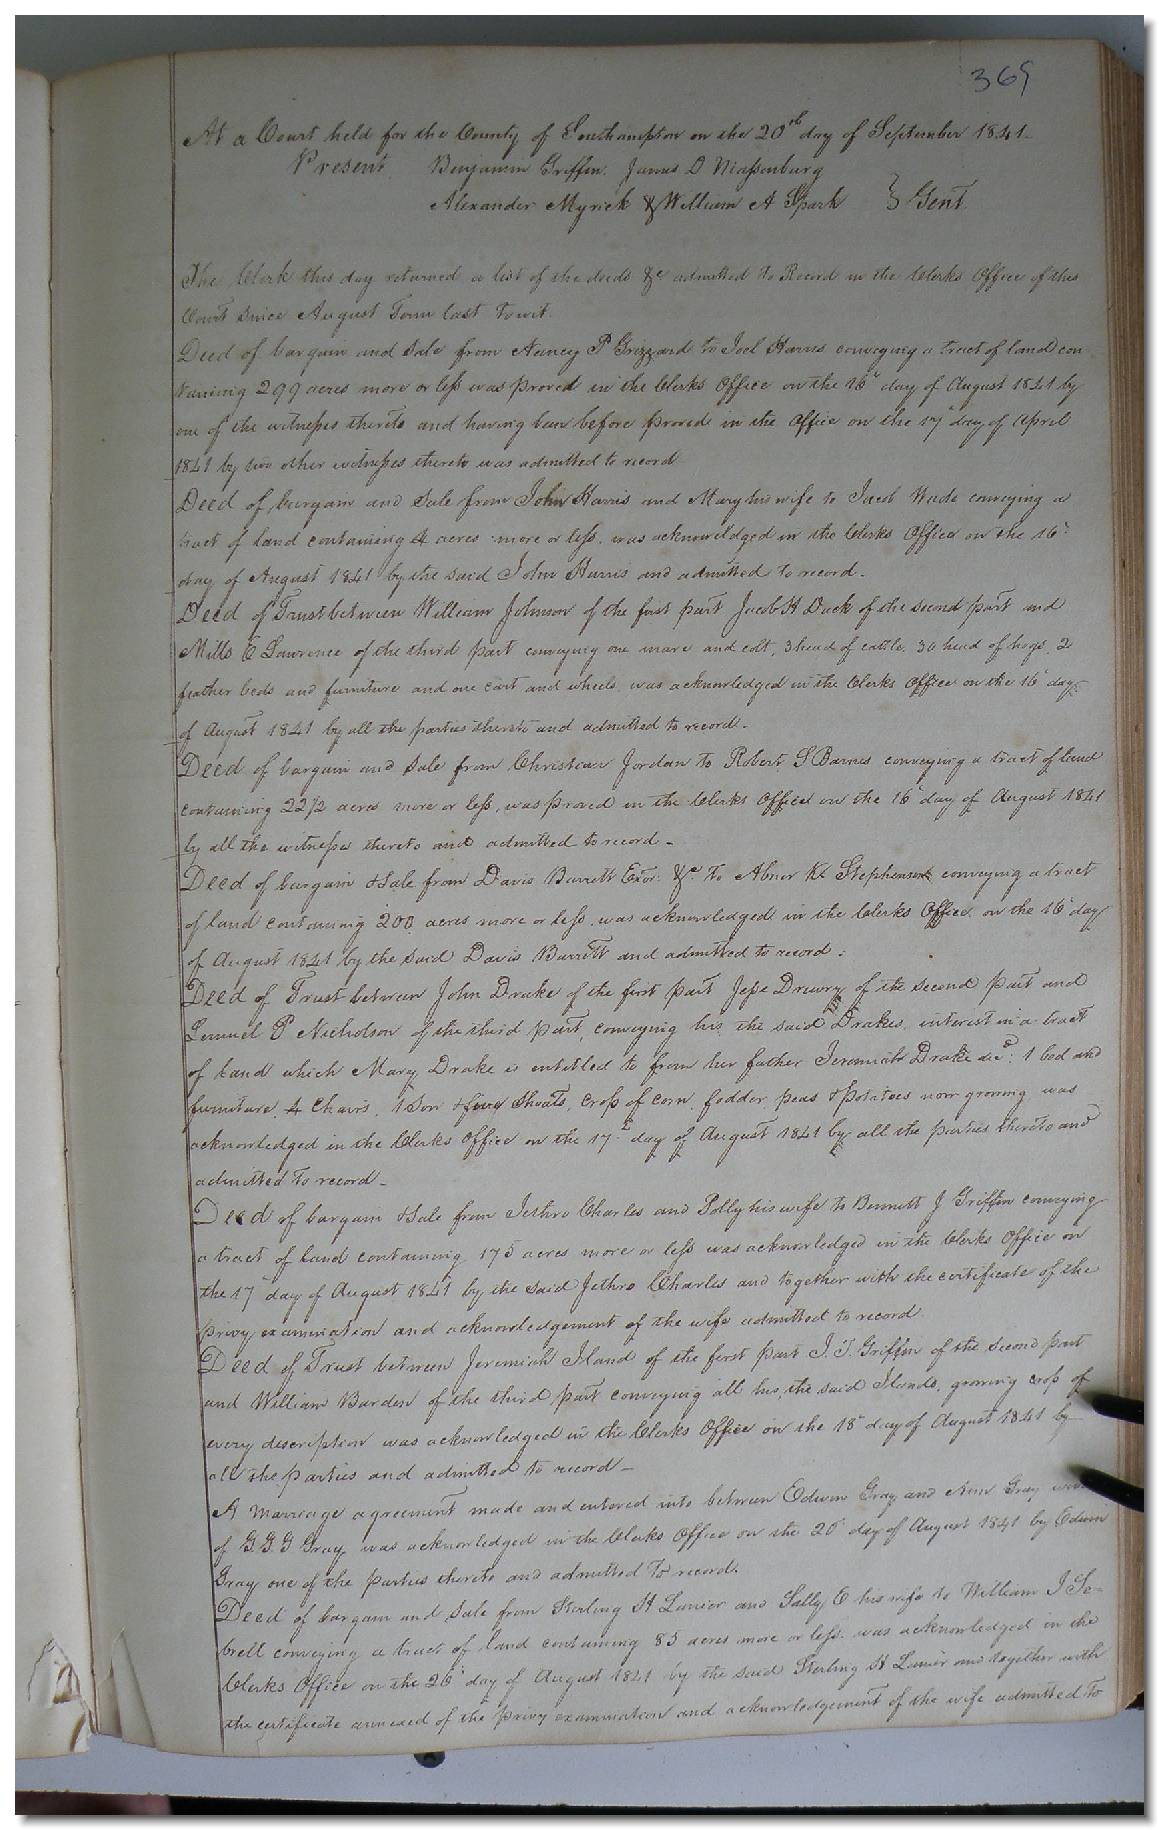 369
At a Court held for the County of Southampton on the 20th day of September 1841
Present Benjamin Griffin, James D Massenburg
Alexander Myrick & William A Spark } Gent
The Clerk this day returned a list of the deeds &c admitted to Record in the Clerks Office of this
Court since August Term last towit.
Deed of bargain and sale from Nancy P Grizzard to Joel Harris conveying a tract of land con
taining 299 acres more or less was proved in the Clerks Office on the 16th day of August 1841 by
one of the witnesses thereto and having been before proved in the Office on the 17 day of April
1841 by two other witnesses thereto was admitted to record
Deed of bargain and sale from John Harris and Mary his wife to Jacob Wade conveying a
tract of land containing 4 acres more or less, was acknowledged in the Clerks Office on the 16th
day of August 1841 by the said John Harris and admitted to record.
Deed of Trust between William Johnson of the first part Jacob H Duck of the second part and
Mills E Lawrence of the third part conveying one mare and colt, 3 head of cattle, 30 head of hogs, 2
feather beds and furniture and one cart and wheels, was acknowledged in the Clerks Office on the 16th day
of August 1841 by all the parties thereto and admitted to record.
Deed of bargain and sale from Christian Jordan to Robert S Barnes conveying a tract of land
containing 22 1/2 acres more or less, was proved in the Clerks Office on the 16th day of August 1841
by all the witnesses thereto and admitted to record
Deed of bargain & sale from Davis Barrett Exor: &c. to Abner K Stephenson conveying a tract
of land containing 200 acres more or less, was acknowledged in the Clerks Office on the 16th day
of August 1841 by the said Davis Barrett and admitted to record:
Deed of Trust between John Drake of the first part Jesse Drewry of the second part and
Lemuel P Nicholson of the third part, conveying his, the said Drakes, interest in a tract
of land which Mary Drake is entitled to from her father Jeremiah Drake decd; 1 bed and
furniture, 4 Chairs, 1 Sow & five Shoats, crop of corn, fodder, peas & potatoes now growing was
acknowledged in the Clerks Office on the 17th day of August 1841 by all the parties thereto and
admitted to record
Deed of bargain & sale from Jethro Charles and Polly his wife to Bennett J Griffin conveying
a tract of land containing 175 acres more or less was acknowledged in the Clerks Office on
the 17th day of August 1841 by the said Jethro Charles and together with the certificate of the
privy examination and acknowledgement of the wife admitted to record
Deed of Trust between Jeremiah Iland of the first part J. J. Griffin of the second part
and William Barden of the third part conveying all his, the said Ilands, growing crop of
every description was acknowledged in the Clerks Office on the 18th day of August 1841 by
all the parties and admitted to record
A Marriage agreement made and entered into between Edwin Gray and Ann Gray
of G.G.G Gray was acknowledged in the Clerks Office on the 26 day of August 1841 by Edwin
Gray one of the parties thereto and admitted to record.
Deed of bargain and sale from Sterling H Lanier and Sally E his wife to William J Se-
brell conveying a tract of land containing 85 acres more or less was acknowledged in the
Clerks Office on the 26 day of August 1841 by the said Sterling H Lanier and together with
the certificate annexed of the privy examination and acknowledgement of the wife admitted to